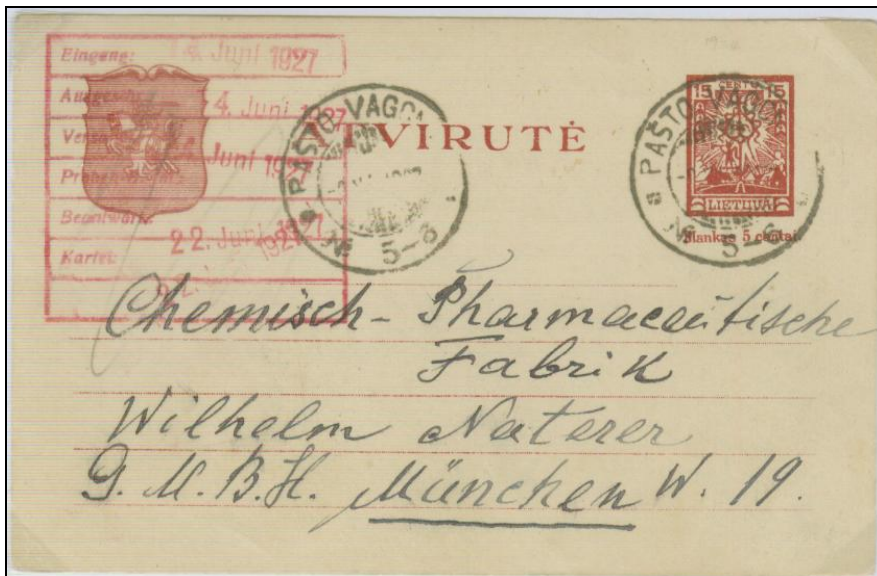 Eingang: 14. Juni 1927
4. Juni 1927
Juni 1927
Beantwort.
22. Juni 1927
Kartei:
ATVIRUTĖ
PAŠTO VAGON
№ 5-6
15 CENTŲ 15
LIETUVA
Blankas 5 centai.
PAŠTO VAGON
№ 5-6
Chemisch-Pharmaceutische
Fabrik
Wilhelm Naterer
G.M.B.H. München W. 19.